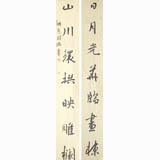 日月光華臨畫棟
山川環拱映雕欄